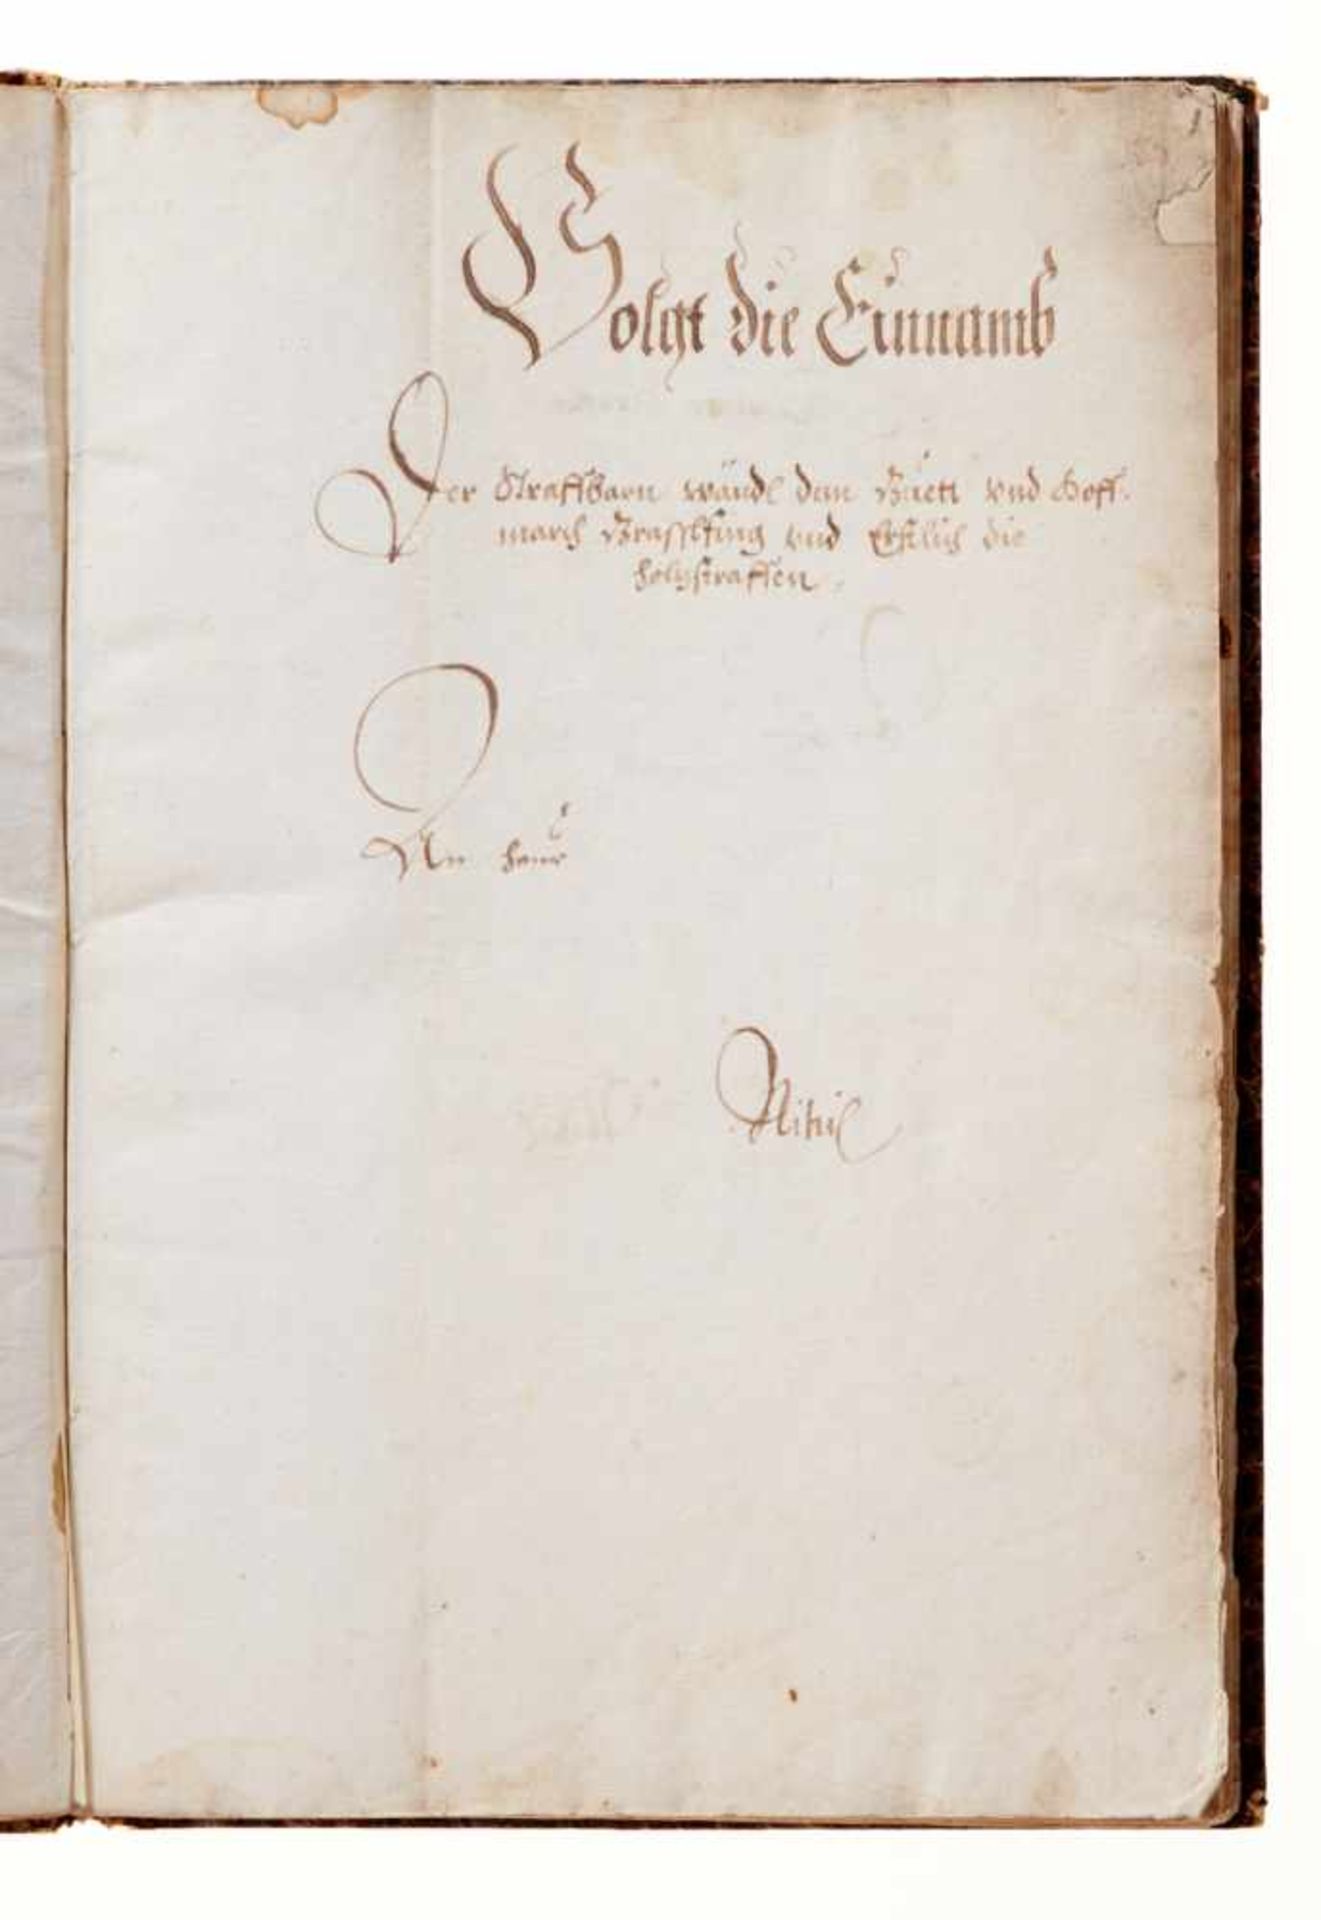 Volgt die Einnamb
Der Straffbarn wändl den Guett vnd Hoff-
march Grasslfing vnd Erstlich die
holzstraffen.
An heur
Nihil